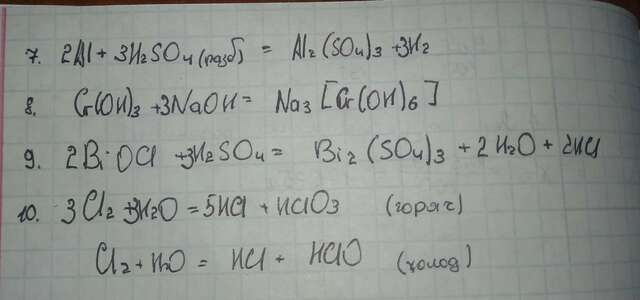 7. 2Al + 3H2SO4 (разб) = Al2(SO4)3 + 3H2
8. Cr(OH)3 + 3NaOH = Na3[Cr(OH)6]
9. 2BiOCl + 3H2SO4 = Bi2(SO4)3 + 2H2O + 2HCl
10. 3Cl2 + 3H2O = 5HCl + HClO3 (горяч)
Cl2 + H2O = HCl + HClO (холод)